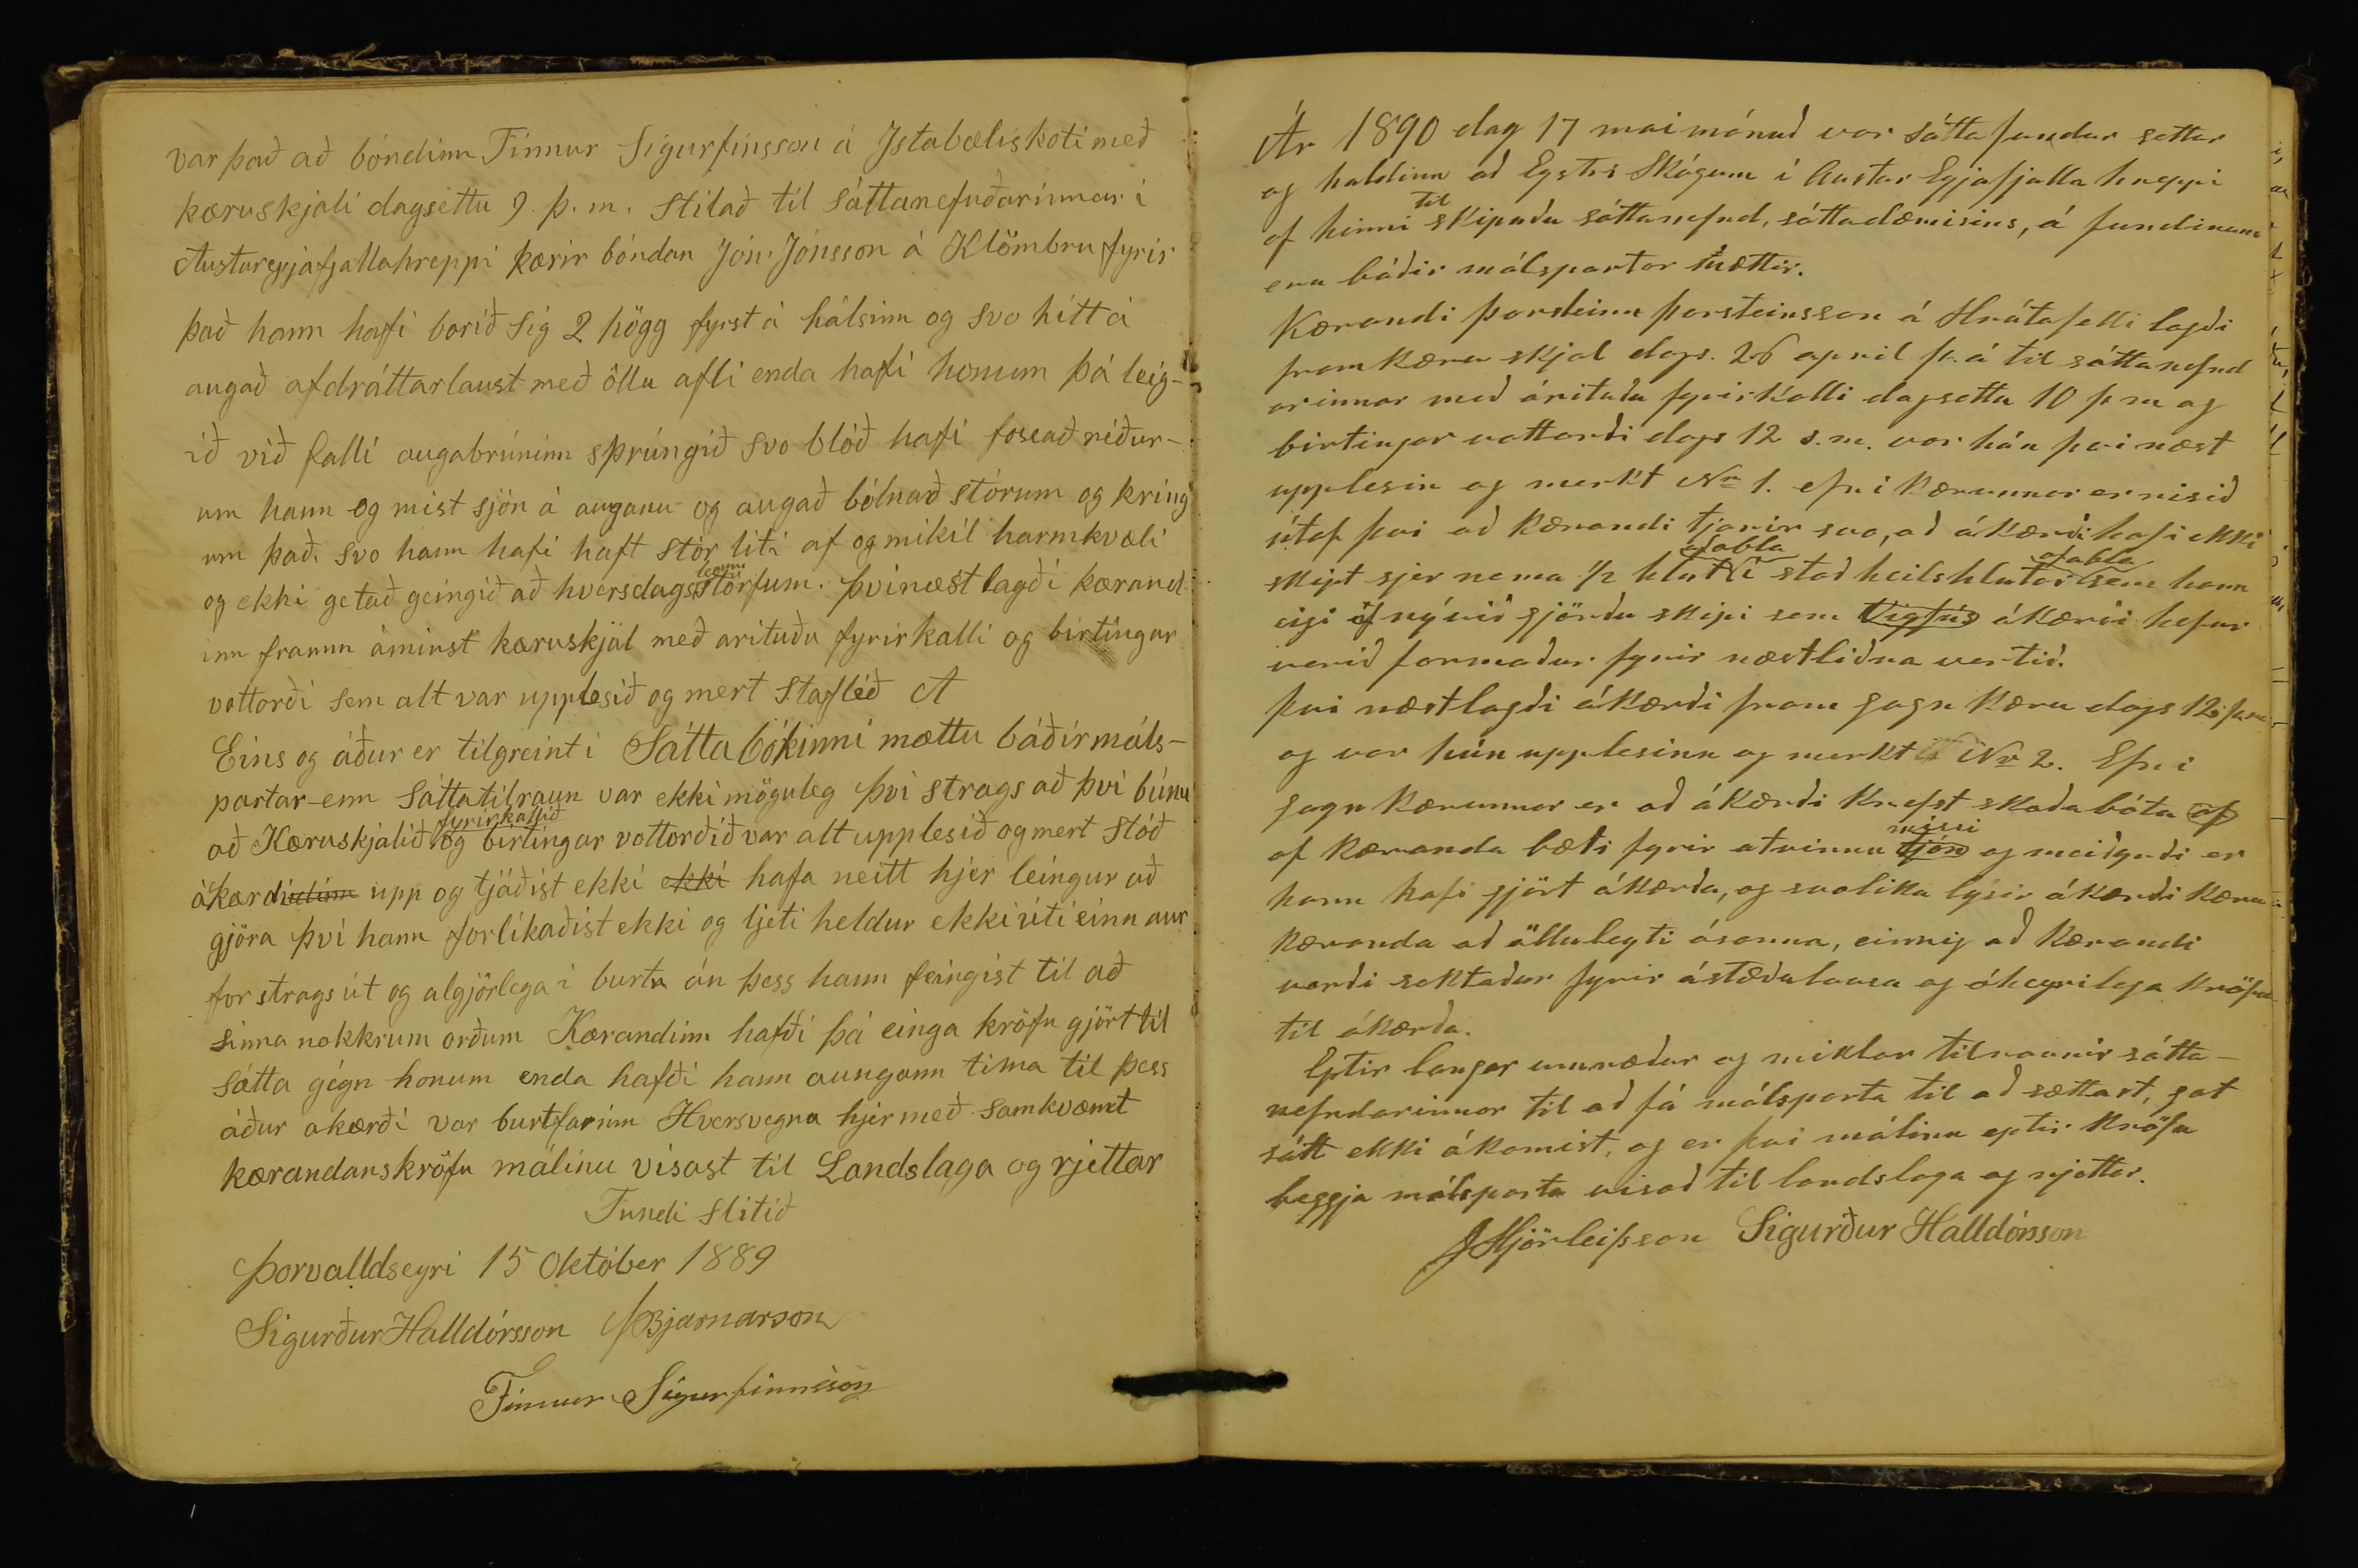 var það að bóndinn Finnur Sigurfinsson á Istabæliskoti með
kæruskjali dagsettu 9. þ.m. stílað til sáttanefndarinnar í
Austureyjafjallahreppi kærir bóndan Jón Jónsson á Klömbru fyrir
það hann hafi borið sig 2 högg fyrst á hálsinn og svo hitt á
augað afdráttarlaust með öllu afli enda hafi honum þá leig-
ið við falli augabrúninn sprúngið svo blóð hafi fossað niður-
um hann og mist sjón á auganu og augað bólnað stórum og kríng
um það. svo hann hafi haft stór líti af og mikil harmkvæli
og ekki getað geingið að hversdags störfum. þvínæst lagði kærand-
inn framm áminst kæruskjal með arituðu fyrirkalli og birtingar
vottorði sem alt var upplesið og mert stafleð A
Eins og áður er tilgreint í Sátta bókinni mættu báðir máls-
partar enn sáttatilraun var ekki möguleg því strags að því búnu
að Kæruskjalið fyrirkallið og birtingar vottorðið var alt upplesið og mert stóð
ákærdi upp og tjáðist ekki ekki hafa neitt hjer leingur að
gjöra því hann forlíkaðist ekki og ljeti heldur ekki úti einn aur
for strags út og algjörlega í burtu án þess hann feingist til að
sinna nokkrum orðum Kærandinn hafði þá einga kröfu gjört til
sátta gégn honum enda hafði hann aungann tíma til þess
áður akærði var burtfarinn Hversvegna hjer með samkvæmt
kærandans kröfu málinu vísast til Landslaga og rjettar
Fundi slitið
Þorvalldseyri 15 Október 1889
Sigurður Halldórsson ÞBjarnarson
Finnur Sigurfinnsson
Ár 1890 dag 17 mai mánuð var sátta fundur settur
og haldinn að Eystri Skógum í Austur Eyjafjalla hreppi
af hinni til skipuðu sáttanefnd, sáttadæmisins, á fundinum
eru báðir málspartar mættir.
Kærandi þorsteinn þorsteinsson á Hrútafelli lagði
fram kæru skjal dags. 26 april þ.á til sáttanefnd
arinnar með árituðu fyrirkalli dagsettu 10 þ m og
birtingar vottorði dags 12 s.m. var hún því næst
upplesin og merkt Nr 1. efni kærunnar er risið
útaf því að kærandi tjáir svo, að ákærði hafi ekki
skipt sjer nema 1/2 hlut afabla í stað heils hlutar afabla sem hann
eigi af nývið gjörðu skipi sem Vigfús ákærði hefur
verið formaður fyrir næstliðna vertið.
því næst lagði ákærði fram gagn kæru dags 12 þ.m.
og var hún upplesinn og merkt Nr 2. Efni
gagn kærunnar er að ákærði krefst skaðabóta af
af kæranda bæði fyrir atvinnu tjón missi og meiðyrði er
hann hafi gjört ákærða, og svoleiðis lýsir ákærði kæru
kæranda að ölluleyti ósanna, einnig að kærandi
verði sektaður fyrir ástæðulausa og óheyrilega kröfu
til ákærða.
Eptir langar umræður og miklar tilraunir sátta-
nefndarinnar til að fá málsparta til að sættast, gat
sátt ekki ákomist, og er því málinu eptir kröfu
beggja málsparta vísað til landslaga og rjettar.
JHjörleifsson Sigurður Halldórsson